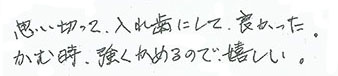 思い切って、入れ歯にして、良かった。
かむ時、強くかめるので、嬉しい。